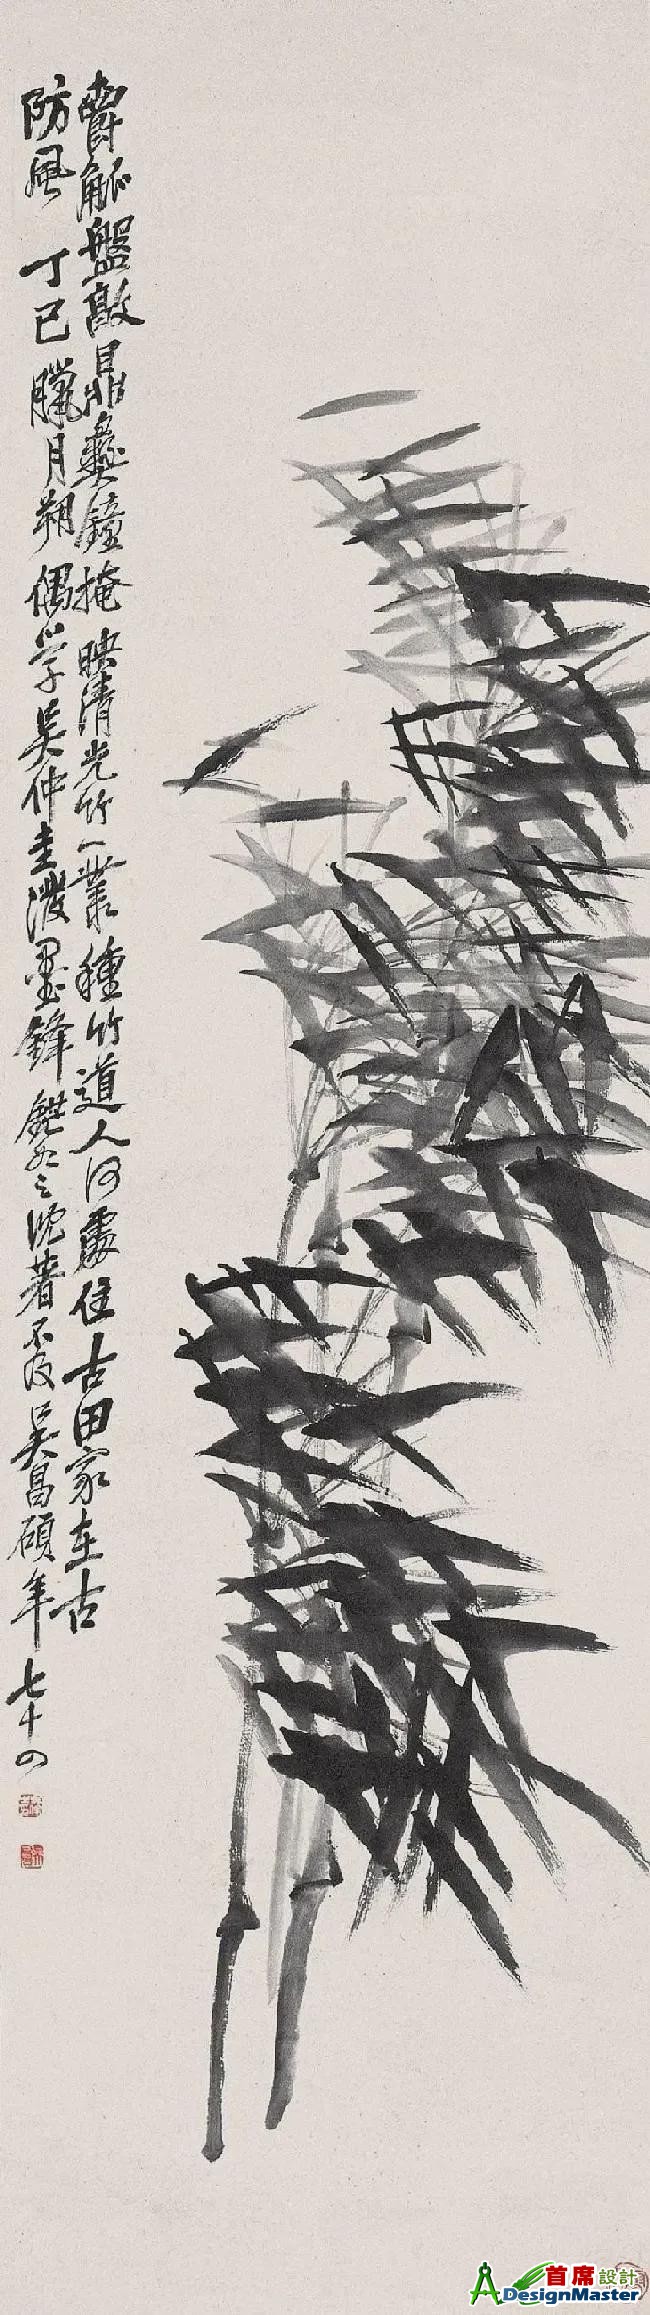 爵觚盤敦鼎彝鐘掩映清光竹一叢種竹道人何處住古田家在古
防風 丁巳臘月朔偶學吳仲圭潑墨鋒之沈著不及吳昌碩年七十四
首席設計
ADesignMaster